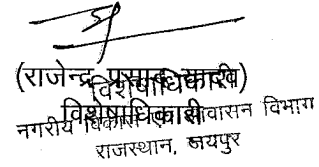 (राजेन्द्र प्रसाद
विशेषाधिकारी
विशेषाधिकारी
नगरीय विकास आवासन विभाग
राजस्थान, जयपुर